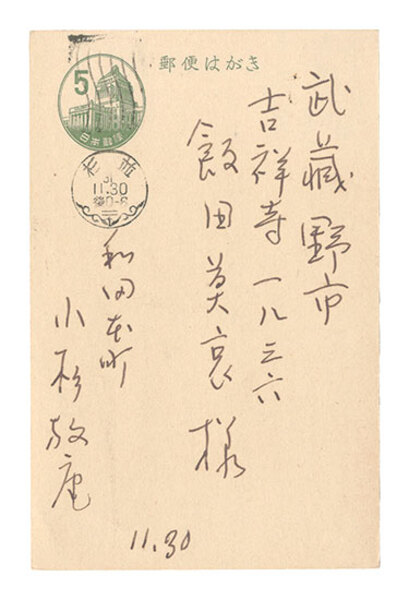 郵便はがき
5
日本郵便
杉並
11.30
後0-6
武藏野市
吉祥寺一八三六
飯田莫哀様
和田本町
小杉放庵
11.30